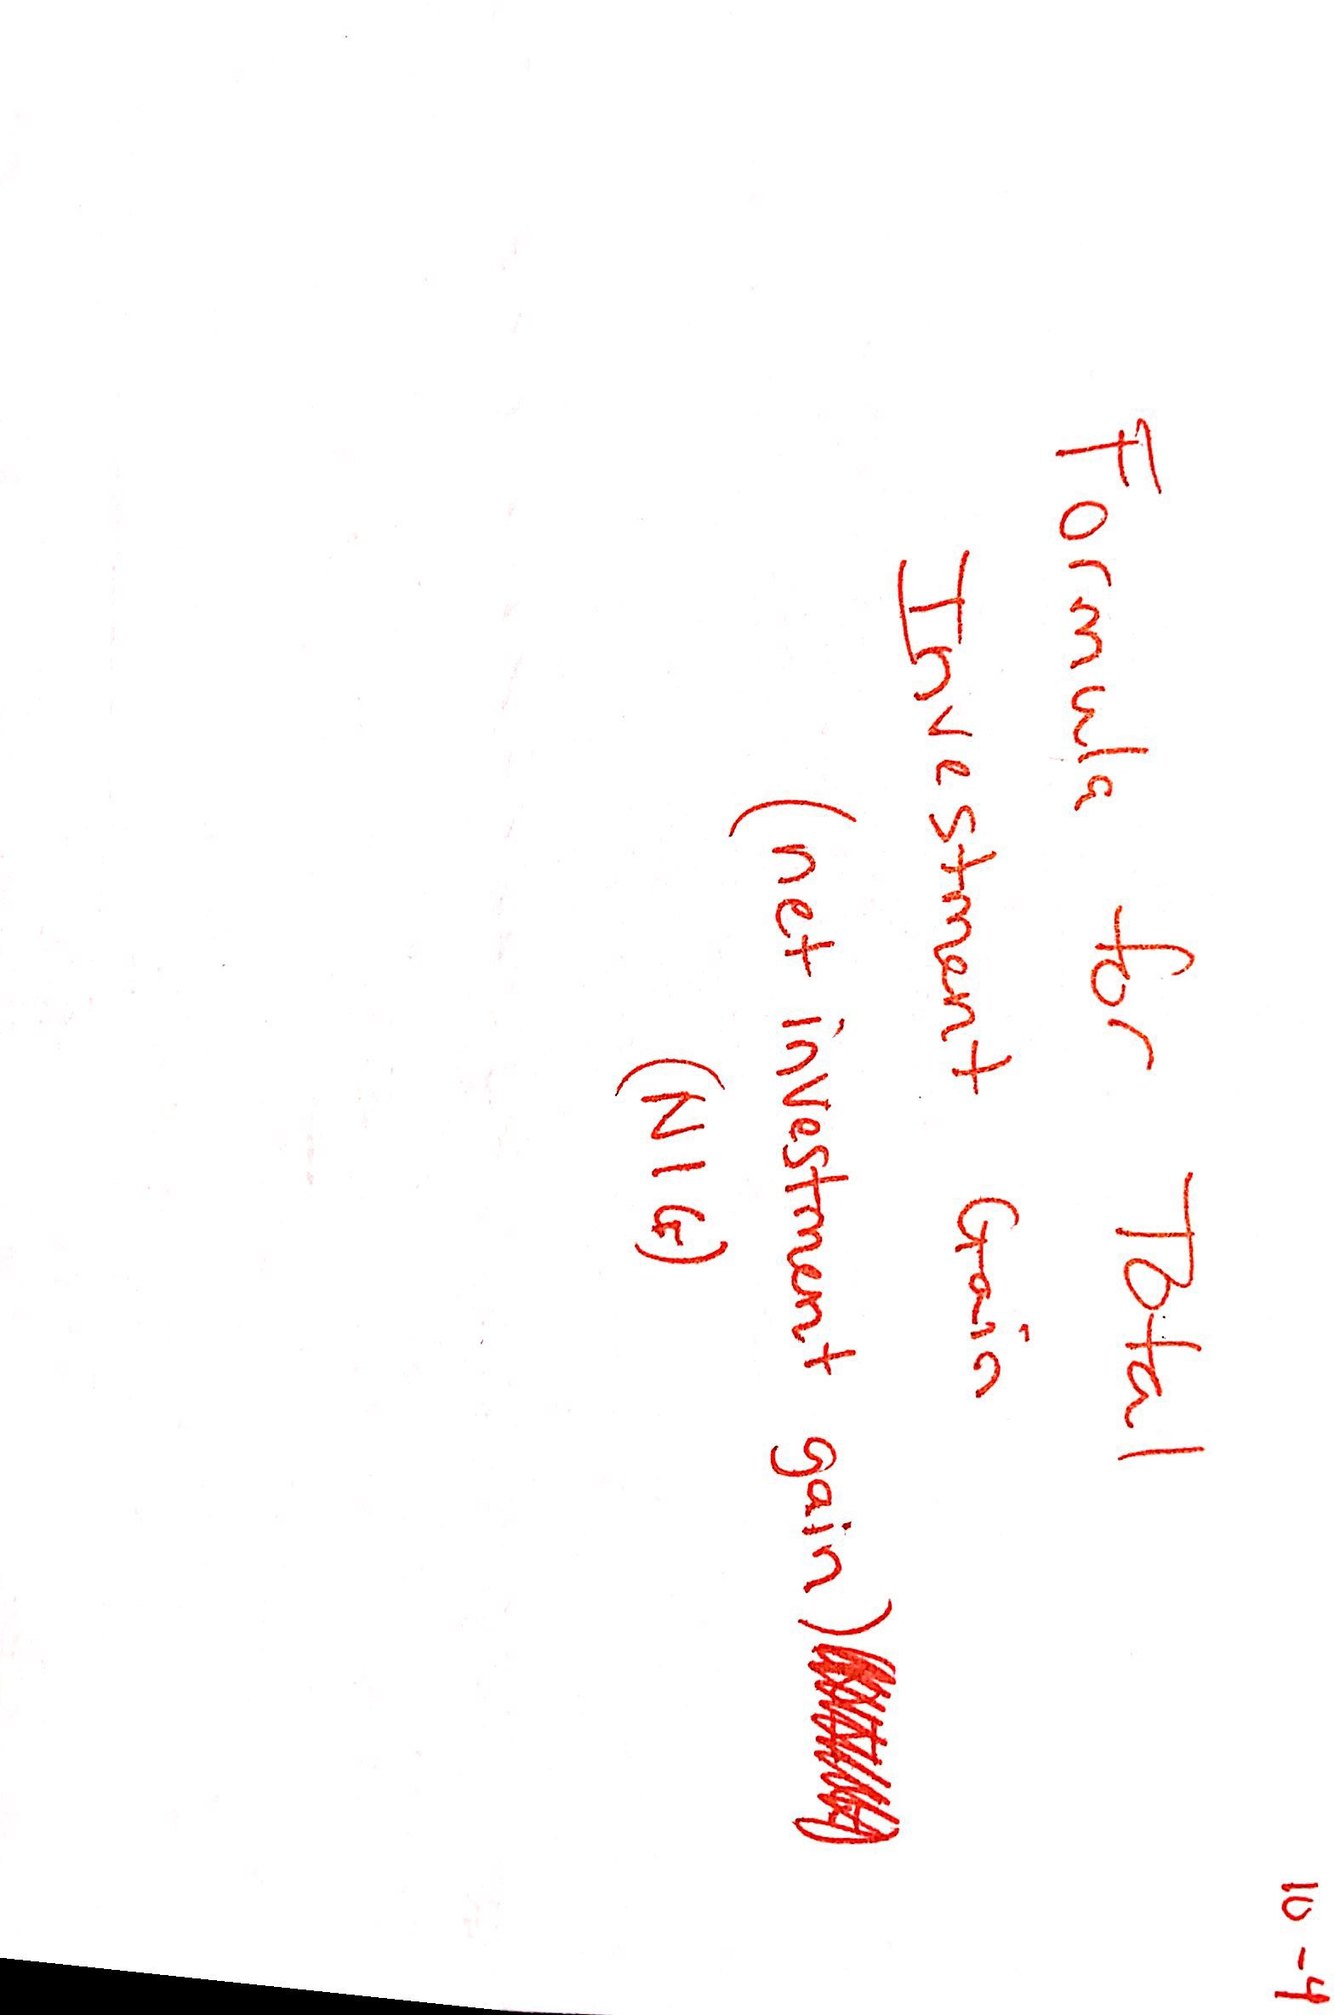 10-4
Formula for Total
Investment Gain
(net investment gain)
(NIG)